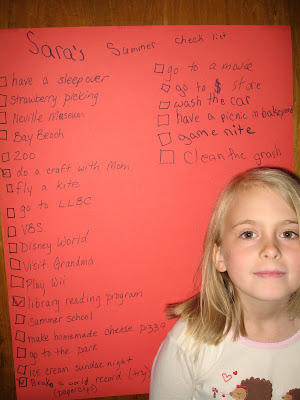 Sara's Summer check list
have a sleepover
Strawberry picking
Neville Museum
Bay Beach
zoo
do a craft with Mom
fly a kite
go to LLBC
VBS
Disney World
Visit Grandma
Play Wii
library reading program
Summer school
make homemade cheese p339
go to the park
ice cream sundae night
Break a world record (try)
(paperclips)
go to a movie
go to $ store
wash the car
have a picnic in backyard
game nite
Clean the